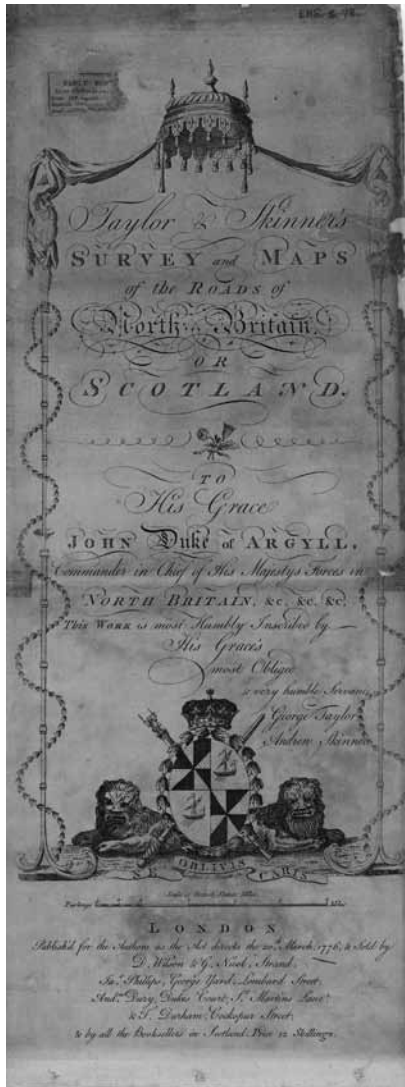 Taylor & Skinner's
SURVEY and MAPS
of the ROADS of
North Britain,
OR
SCOTLAND.
TO
His Grace
JOHN Duke of ARGYLL,
Commander in Chief of His Majestys Forces in
NORTH BRITAIN, &c, &c, &c.
This WORK is most Humbly Inscribed by
His Grace's
most Obliged
& very humble Servants
George Taylor
Andrew Skinner
NE OBLIVIS CARIS
Scale of British Statute Miles
Furlongs
Miles
LONDON,
Publish'd for the Authors as the Act directs the 20th March, 1776, & Sold by
D. Wilson & G. Nicol, Strand,
Jas. Phillips, George Yard, Lombard Street,
And. Dury, Dukes Court, St. Martins Lane,
& T. Durham, Cockspur Street,
& by all the Booksellers in Scotland. Price 12 Shillings.